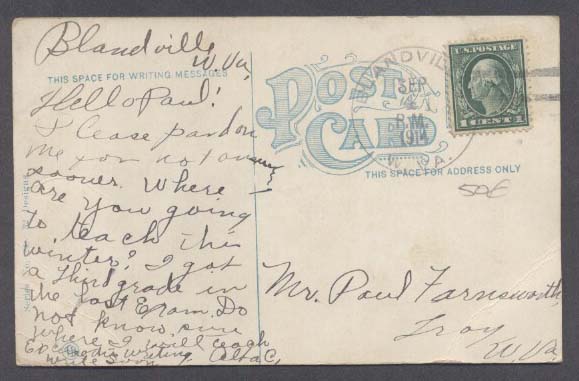 Blandville
W. Va,
THIS SPACE FOR WRITING MESSAGES
Hello Paul!
Please pardon
me for not answering
sooner. Where
are you going
to teach this
winter? I got
a Third grade in
the last Exam. Do
not know sure
where I will teach
writing
write soon
POST CARD
BLANDVIL
SEP
P.M.
1914
W. VA.
U.S. POSTAGE
1 CENT 1
THIS SPACE FOR ADDRESS ONLY
50¢
Mr. Paul Farnsworth,
Troy
W. Va.